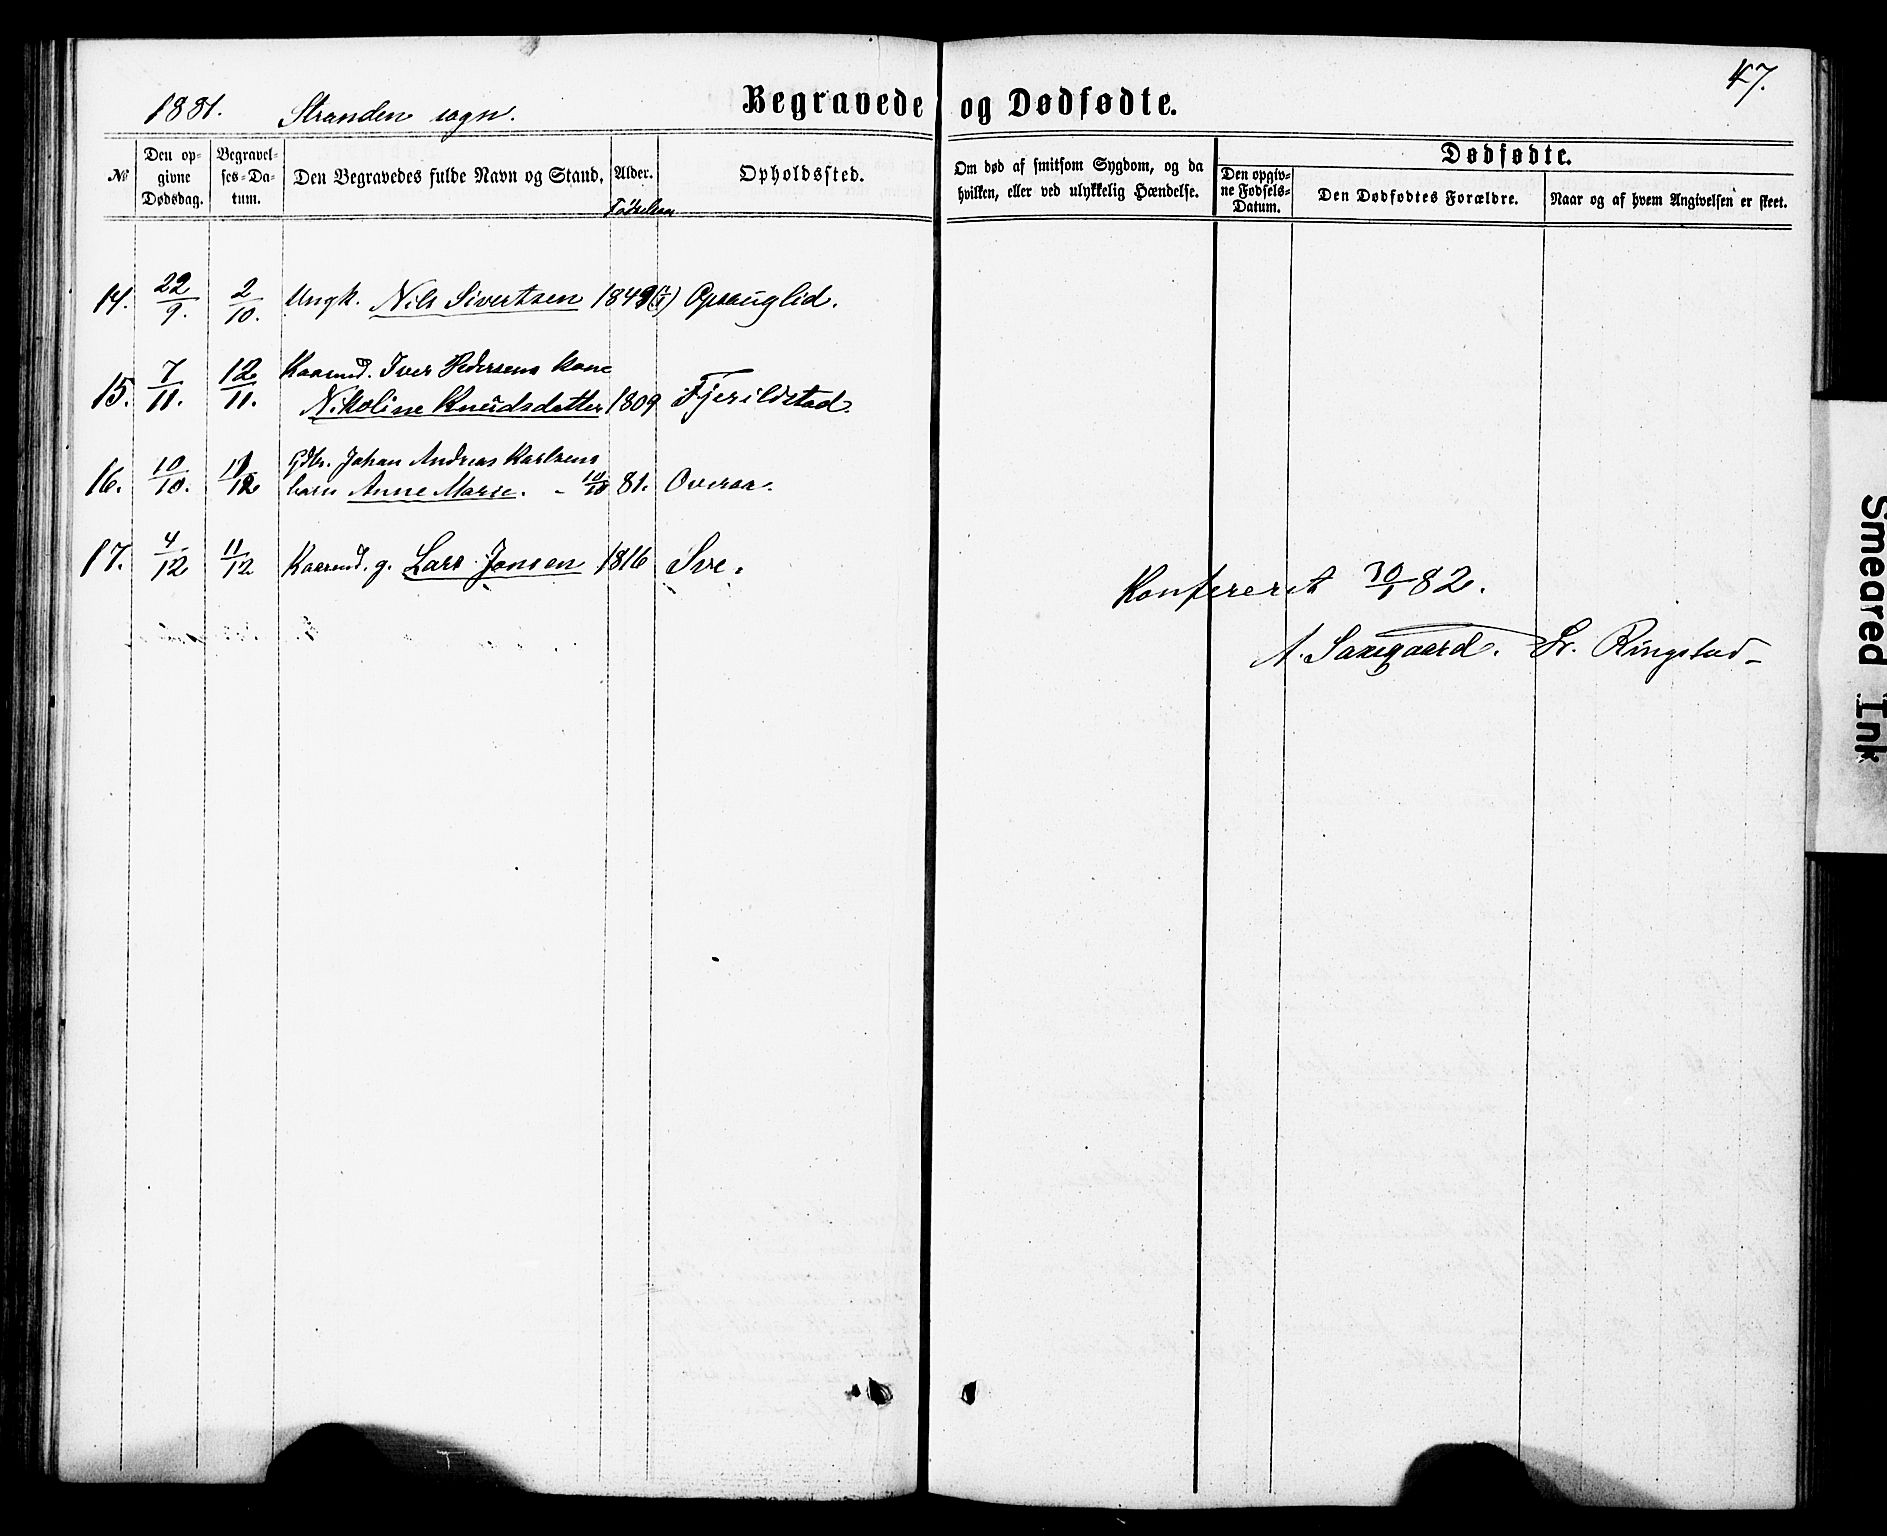 1881. Stranden sogn. Begravede og Dødfødte. 47.
No
Den opgivne Dødsdag.
Begravelses-Datum.
Den Begravedes fulde Navn og Stand.
Alder.
Opholdssted.
Om død af smitsom Sygdom, og da
hvilken, eller ved ulykkelig Hændelse.
Dødfødte.
Den opgivne Fødsels-Datum.
Den Dødfødtes Forældre.
Naar og af hvem Angivelsen er skeet.
14. 22/9. 2/10. Ungk. Nils Sivertsen 1849 Opsauglid.
Kaarmd. Iver Pedersens kone
15. 7/11. 12/11. Nikoline Knudsdatter 1809 Fjerildstad
Gdbr. Johan Andreas Karlsens
16. 10/10. barn Anne Marie. 10/10 81. Overaa.
17. 4/12 11/12 Kaarmd. g. Lars Jonsen 1816 Sve.
Konfereret 30/1 82.
A. Saxegaard. Fr. Ringstad
Smeared Ink